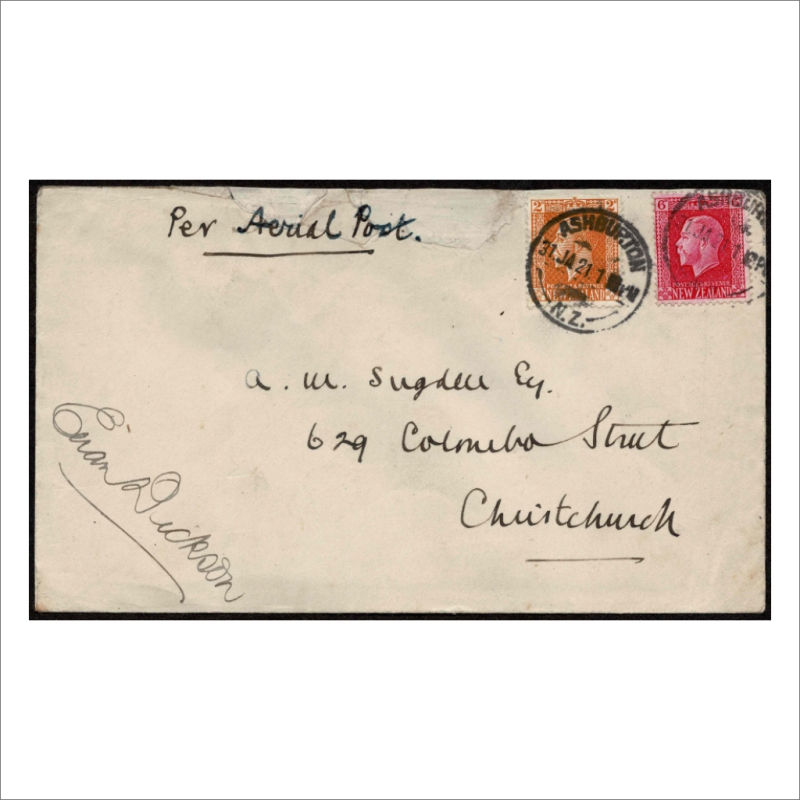 Per Aerial Post.
2ᴰ 2ᴰ
POSTAGE & REVENUE
NEW ZEALAND
ASHBURTON
31 JA 21
N.Z.
6
POSTAGE & REVENUE
NEW ZEALAND
A. M. Sugden Esq.
629 Colombo Street
Christchurch
Euan Dickson